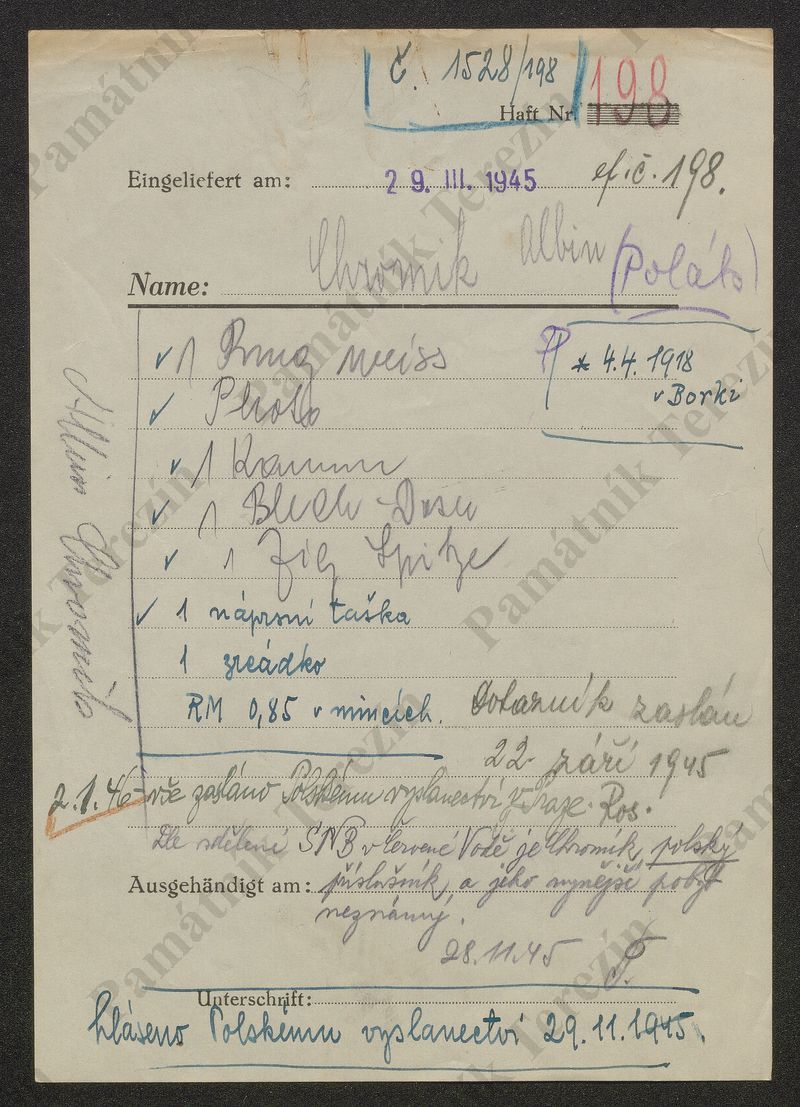 č. 1528/198
Haft Nr. 198
Eingeliefert am: 29. III. 1945 ef. č. 198.
Name: Chromik Albin (Polák)
1 Ring weiss
* 4.4.1918
v Borki
Photo
1 Kamm
1 Blech-Dose
1 Zig Spitze
1 náprsní taška
1 zrcádko
RM 0,85 v mincích.
Dotazník zaslán
22. září 1945
2.1.46 - vše zasláno Polskému vyslanectví v Praze. Ros.
Dle sdělení SNB v Červené Vodě je Chromík, polský
Ausgehändigt am: příslušník, a jeho nynější pobyt
neznámý.
28.11.45
Unterschrift:
hlášeno Polskému vyslanectví 29.11.1945.
Albin Chromik
Památník Terezín